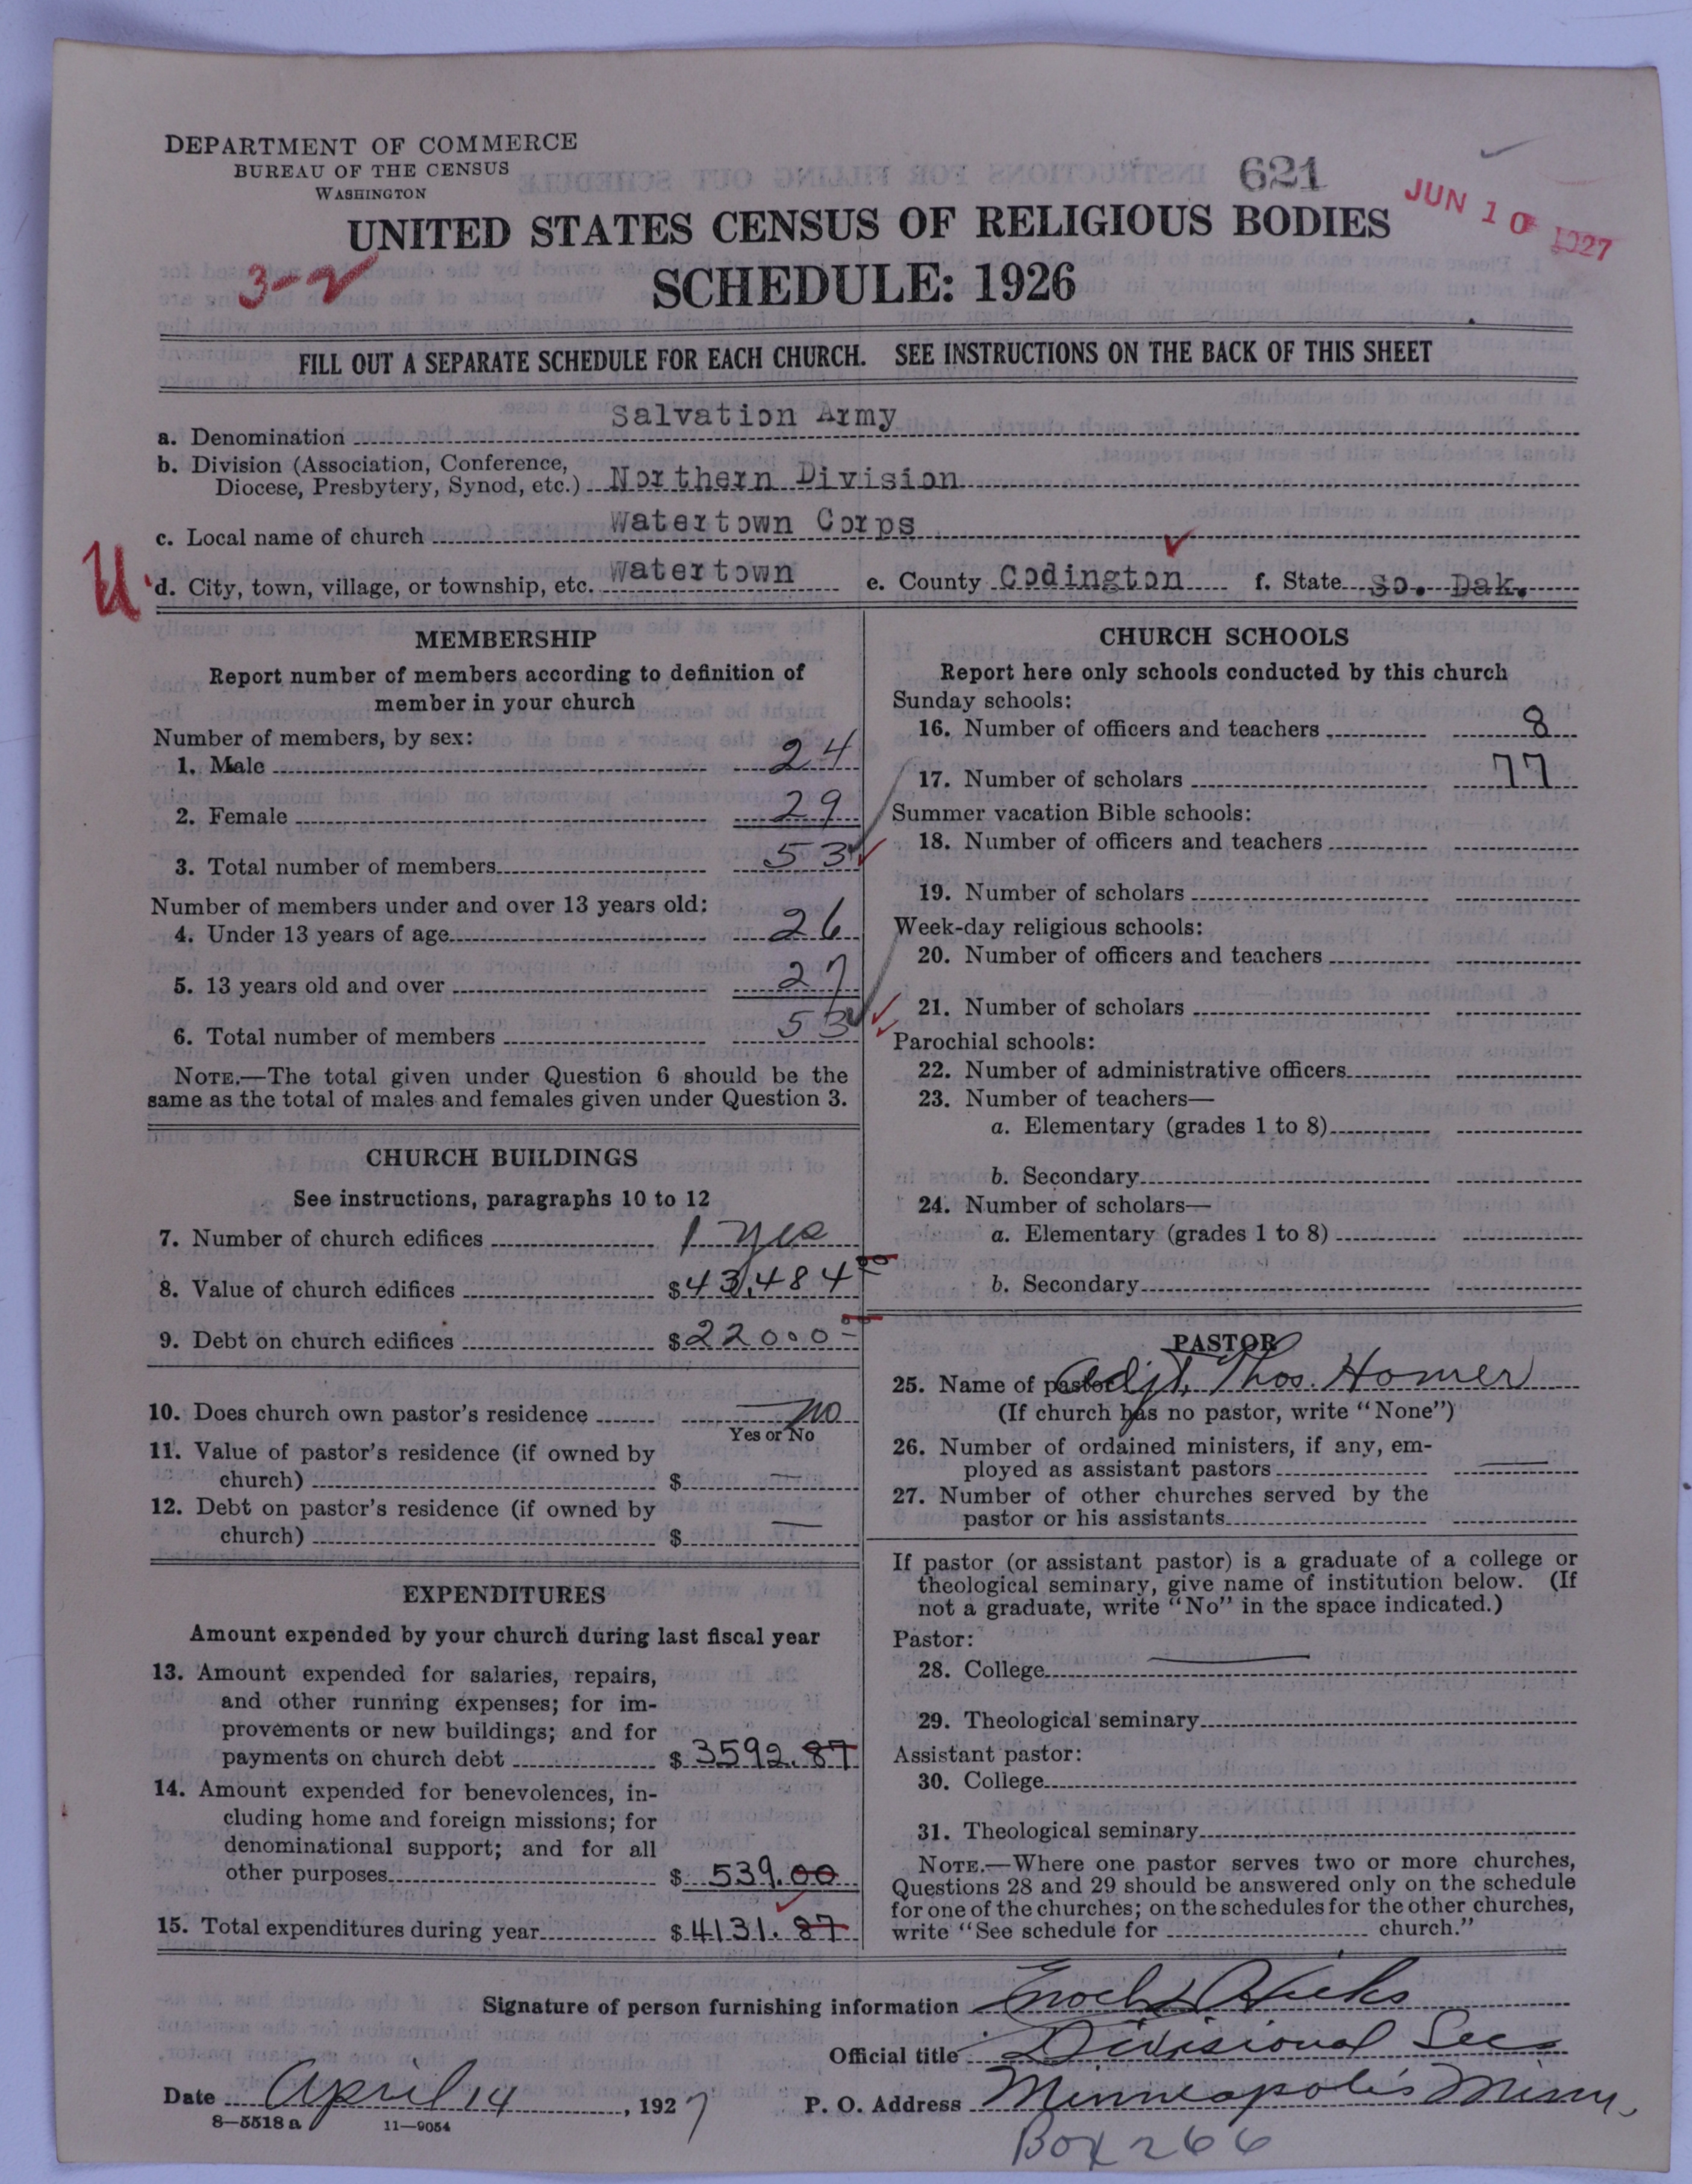 DEPARTMENT OF COMMERCE
BUREAU OF THE CENSUS
WASHINGTON
621
JUN 10 1927
UNITED STATES CENSUS OF RELIGIOUS BODIES
3-2
SCHEDULE: 1926
FILL OUT A SEPARATE SCHEDULE FOR EACH CHURCH. SEE INSTRUCTIONS ON THE BACK OF THIS SHEET
a. Denomination Salvation Army
b. Division (Association, Conference,
Diocese, Presbytery, Synod, etc.) Northern Division
c. Local name of church Watertown Corps
U d. City, town, village, or township, etc. Watertown e. County Codington f. State So. Dak.
MEMBERSHIP
Report number of members according to definition of
member in your church
Number of members, by sex:
1. Male 24
2. Female 29
3. Total number of members 53
Number of members under and over 13 years old:
4. Under 13 years of age 26
5. 13 years old and over 27
6. Total number of members 53
NOTE.—The total given under Question 6 should be the
same as the total of males and females given under Question 3.
CHURCH BUILDINGS
See instructions, paragraphs 10 to 12
7. Number of church edifices 1 yes
8. Value of church edifices $43,484 00
9. Debt on church edifices $22000 00
10. Does church own pastor's residence No
Yes or No
11. Value of pastor's residence (if owned by
church) $ —
12. Debt on pastor's residence (if owned by
church) $ —
EXPENDITURES
Amount expended by your church during last fiscal year
13. Amount expended for salaries, repairs,
and other running expenses; for im-
provements or new buildings; and for
payments on church debt $3592.87
14. Amount expended for benevolences, in-
cluding home and foreign missions; for
denominational support; and for all
other purposes $539.00
15. Total expenditures during year $4131.87
CHURCH SCHOOLS
Report here only schools conducted by this church
Sunday schools:
16. Number of officers and teachers 8
17. Number of scholars 77
Summer vacation Bible schools:
18. Number of officers and teachers
19. Number of scholars
Week-day religious schools:
20. Number of officers and teachers
21. Number of scholars
Parochial schools:
22. Number of administrative officers
23. Number of teachers—
a. Elementary (grades 1 to 8)
b. Secondary
24. Number of scholars—
a. Elementary (grades 1 to 8)
b. Secondary
PASTOR
25. Name of pastor Adjt. Thos. Homer
(If church has no pastor, write "None")
26. Number of ordained ministers, if any, em-
ployed as assistant pastors —
27. Number of other churches served by the
pastor or his assistants
If pastor (or assistant pastor) is a graduate of a college or
theological seminary, give name of institution below. (If
not a graduate, write "No" in the space indicated.)
Pastor:
28. College —
29. Theological seminary
Assistant pastor:
30. College
31. Theological seminary
NOTE.—Where one pastor serves two or more churches,
Questions 28 and 29 should be answered only on the schedule
for one of the churches; on the schedules for the other churches,
write "See schedule for church."
Signature of person furnishing information Enoch Hicks
Official title Divisional Sec
Date April 14, 1927 P. O. Address Minneapolis Minn.
8—5518 a 11—9054
Box 266